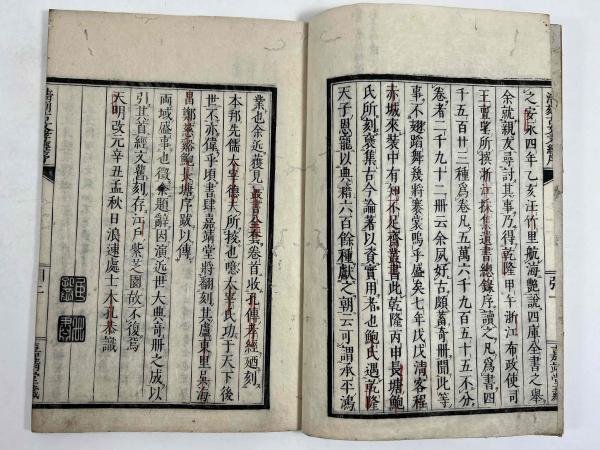 清刻古文孝經序
之安永四年乙亥汪竹里航海艷說四庫全書之舉
余就親友尋討其事乃得乾隆甲午浙江布政使司
王亶望所撰浙江採集遺書總錄序讀之凡爲書四
千五百廿三種爲卷凡五萬六千九百五十五不分
卷者二千九十二冊云余夙好古頗蓄奇冊聞此等
事不翅踏舞幾將褰裳嗚乎盛矣七年戊戌清客程
赤城來裝中有知不足齋叢書此乾隆丙申長塘鮑
氏所刻裒集古今論著以資實用者也鮑氏遇乾隆
天子恩寵以典籍六百餘種獻之朝云可謂承平鴻
業也余近獲見叢書全套卷首收孔傳孝經廼刻
本邦先儒太宰德夫所挍也噫太宰氏功于天下後
世不亦偉乎頃書肆嘉靖堂將翻刻其盧東里吳海
昌鄭慈齋鮑長塘序跋以傳
兩域盛事也徵余題辭因演近世大典奇冊之成以
引其首經文舊刻存江戶紫芝園故不復焉
天明改元辛丑孟秋日浪速處士木孔恭識
清刻古文孝經序
嘉靖堂藏